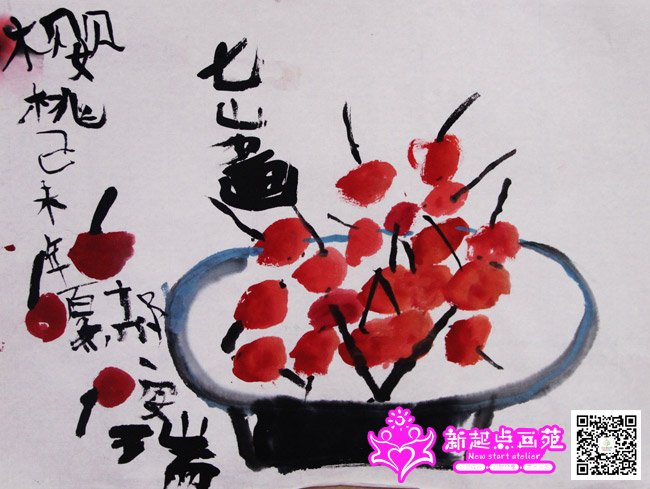 樱
桃
己未年
夏
安
瑞
七山畫
新起点画苑
New start atelier